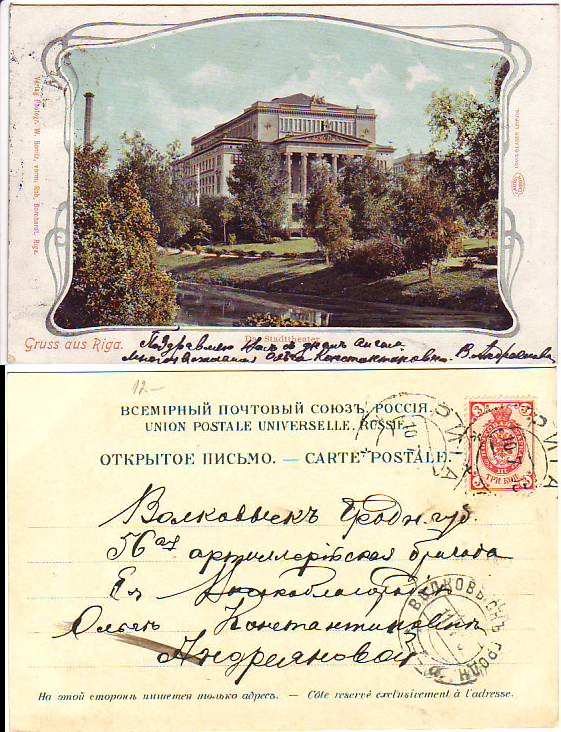 Verlag Photogr. W. Borutz, vorm. Rob. Borchardt, Riga.
Gruss aus Riga.
Das Stadttheater
Поздравляю Васъ съ днемъ ангела
многоуважаемая Ольга Константиновна. В. Андреянова
12-
ВСЕМІРНЫЙ ПОЧТОВЫЙ СОЮЗЪ, РОССІЯ.
UNION POSTALE UNIVERSELLE, RUSSIE.
ОТКРЫТОЕ ПИСЬМО. — CARTE POSTALE.
РИГА
ТРИ КОП.
Волковыскъ Гродн. губ.
56ая артиллерійская бригада
Ея Высокоблагородію
Ольгѣ Константиновнѣ
Андреяновой
ВОЛКОВЫСКЪ ГРОДН.
На этой сторонѣ пишется только адресъ. — Côté réservé exclusivement à l'adresse.